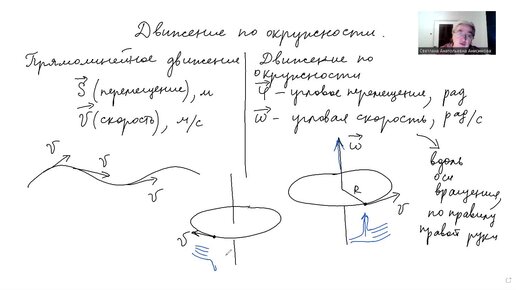 Движение по окружности.
Прямолинейное движение
S (перемещение), м
v (скорость), м/с
Движение по
окружности
φ – угловое перемещение, рад
ω – угловая скорость, рад/с
вдоль
оси
вращения,
по правилу
правой руки
v
v
v
v
ω
R
v
Светлана Анатольевна Анисимова